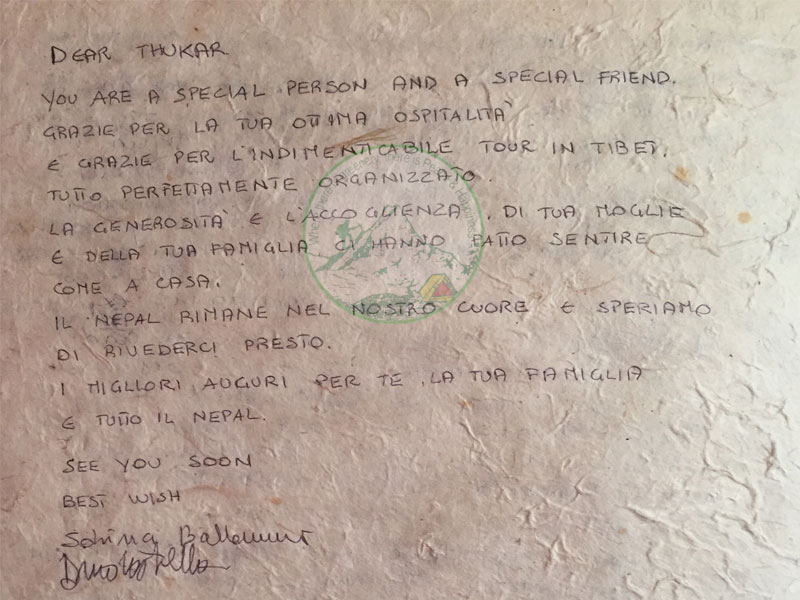 DEAR THUKAR
YOU ARE A SPECIAL PERSON AND A SPECIAL FRIEND.
GRAZIE PER LA TUA OTTIMA OSPITALITÀ
E GRAZIE PER L'INDIMENTICABILE TOUR IN TIBET.
TUTTO PERFETTAMENTE ORGANIZZATO.
LA GENEROSITÀ E L'ACCOGLIENZA, DI TUA MOGLIE
E DELLA TUA FAMIGLIA CI HANNO FATTO SENTIRE
COME A CASA.
IL NEPAL RIMANE NEL NOSTRO CUORE E SPERIAMO
DI RIVEDERCI PRESTO.
I MIGLIORI AUGURI PER TE, LA TUA FAMIGLIA
E TUTTO IL NEPAL.
SEE YOU SOON
BEST WISH
Sabina